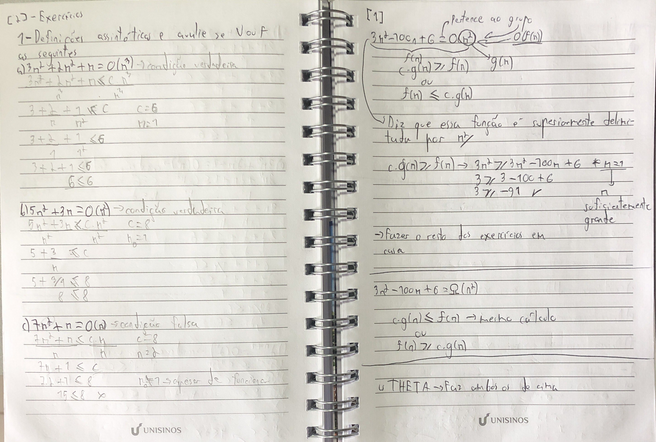 [2] - Exercícios
1 - Definições assintóticas e avalie se V ou F
as seguintes
a) 3n³ + 2n² + n = O(n³) → condição verdadeira
3n³ + 2n² + n ≤ c n³
n³ n³
3 + 2 + 1 ≤ c c = 6
n n² n = 1
3 + 2 + 1 ≤ 6
1 1²
3 + 2 + 1 ≤ 6
6 ≤ 6
b) 5n² + 3n = O(n²) → condição verdadeira
5n² + 3n ≤ c n² c = 8
n² n² n₀ = 1
5 + 3 ≤ c
n
5 + 3/1 ≤ 8
8 ≤ 8
c) 7n² + n = O(n) → condição falsa
7n² + n ≤ c n c = 8
n n
7n + 1 ≤ c
15 ≤ 8 x
UNISINOS
[1]
pertence ao grupo
3n² - 100n + 6 = O(n²) O(f(n))
f(n) g(n)
c.g(n) ≥ f(n)
ou
f(n) ≤ c.g(n)
Diz que essa função é superiormente delimi-
tada por n²
c.g(n) ≥ f(n) → 3n² ≥ 3n² - 100n + 6 * n = 1
3 ≥ 3 - 100 + 6
3 ≥ -91 ✓ n
suficientemente
grande
→ fazer o resto dos exercícios em
casa
3n² - 100n + 6 = Ω(n²)
c.g(n) ≤ f(n) → mesmo cálculo
ou
f(n) ≥ c.g(n)
u THETA → faz ambos de cima
UNISINOS